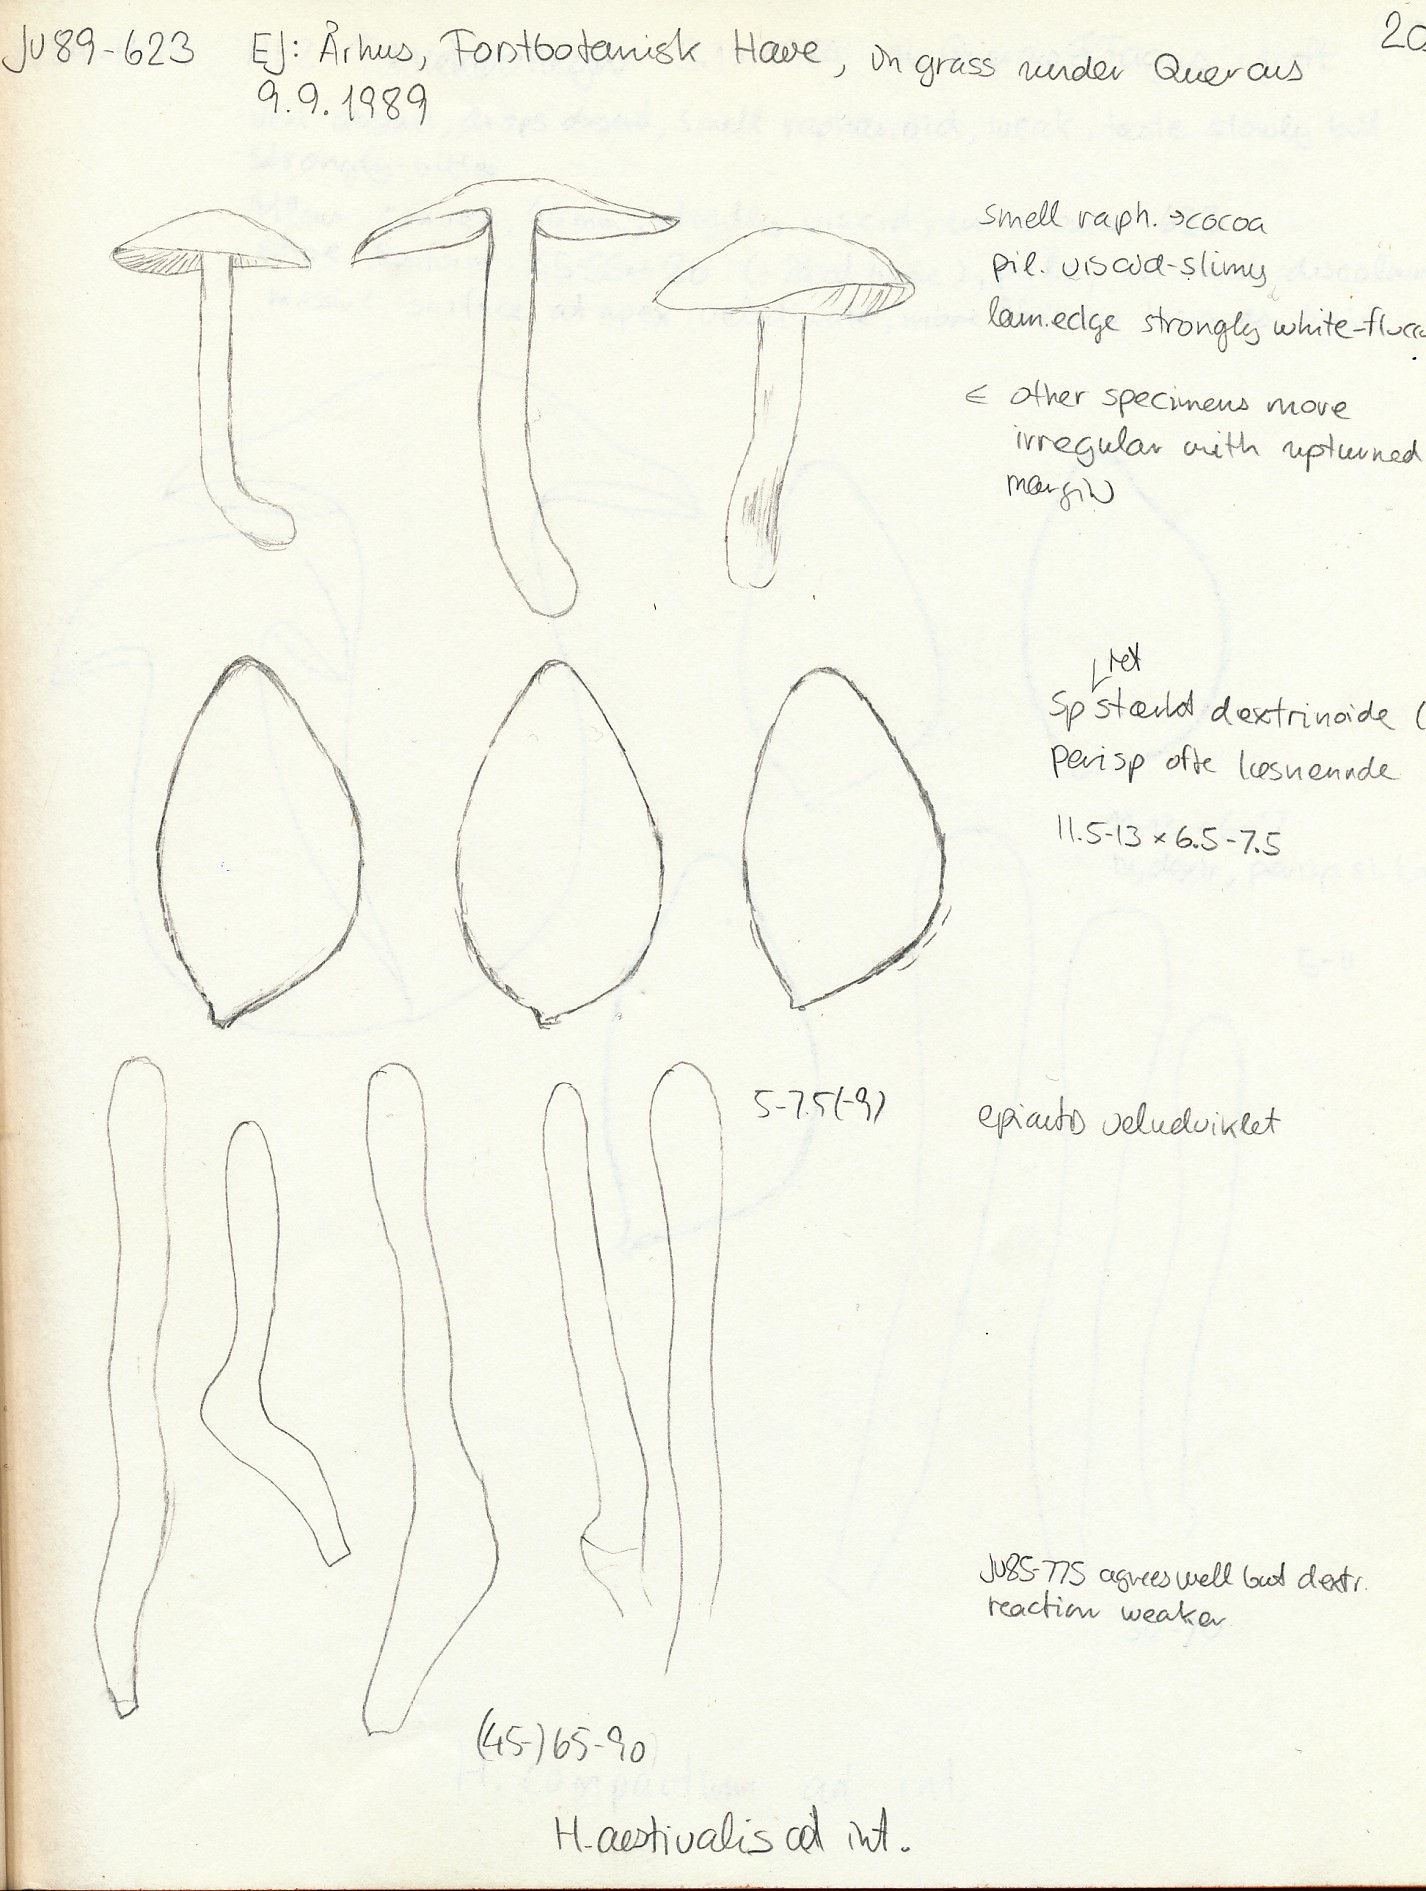 JV89-623 EJ: Århus, Forstbotanisk Have, in grass under Quercus
9.9.1989
smell raph. → cocoa
pil. viscid-slimy
lam.edge strongly white-flocc
∈ other specimens more
irregular with upturned
margin
ret
sp stærkt dextrinoide (
perisp ofte løsnende
11.5-13 × 6.5-7.5
5-7.5(-9)
epicutis veludviklet
JV85-775 agrees well but dextr.
reaction weaker
(45-)65-90
H. aestivalis ad int.